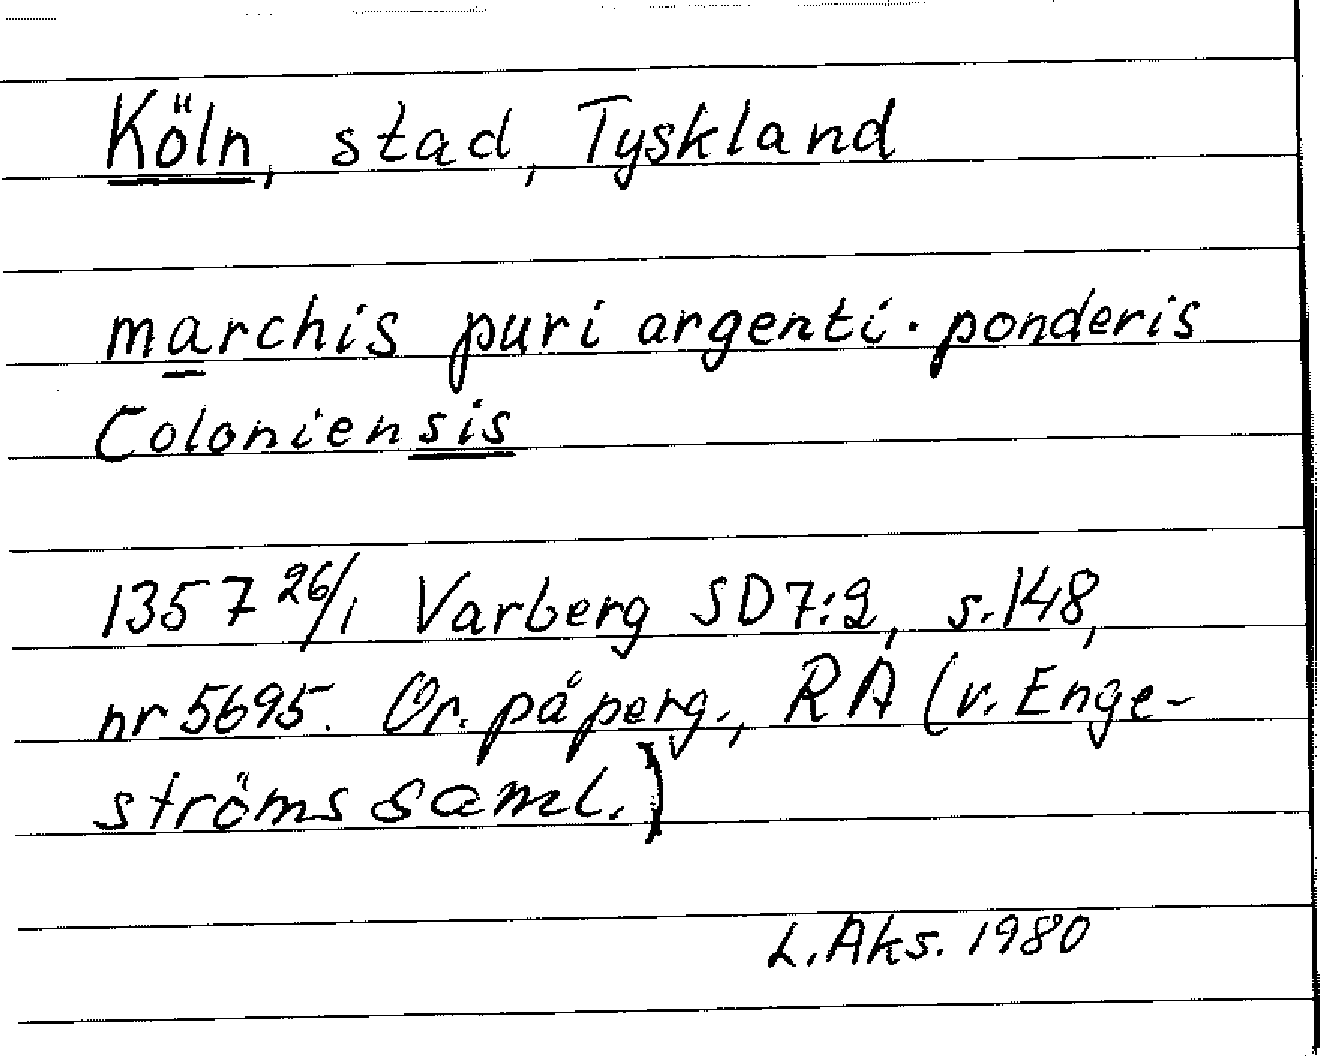 Köln, stad, Tyskland
marchis puri argenti · ponderis
Coloniensis
1357 26/1 Varberg SD7:2, s.148,
nr 5695. Or. på perg., RA (v. Enge-
ströms saml.)
L.Aks. 1980